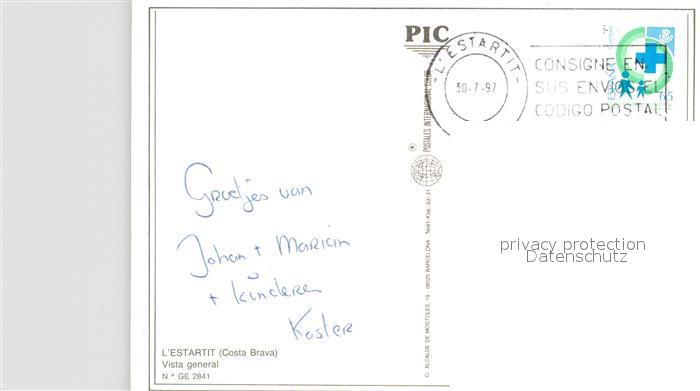 PIC
L'ESTARTIT
30-7-97
CONSIGNE EN
SUS ENVIOS EL
CODIGO POSTAL
ESPAÑA
65
POSTALES INTERNATIONAL COLOR
C/. ALCALDE DE MOSTOLES, 19 - 08025 BARCELONA - Telef. 436-92-21
Groetjes van
Johan + Marian
+ kinderen
Koster
privacy protection
Datenschutz
L'ESTARTIT (Costa Brava)
Vista general
N.º GE 2841